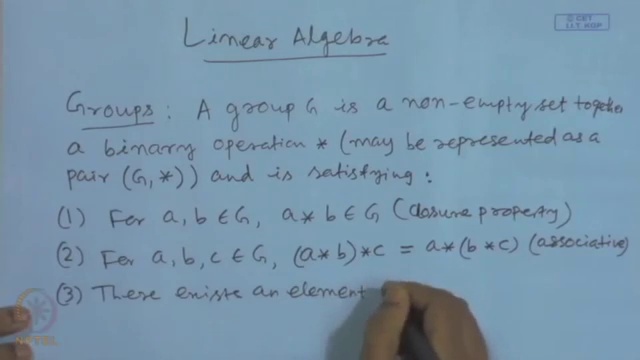 © CET
I.I.T. KGP
Linear Algebra
Groups : A group G is a non-empty set together
a binary operation * (may be represented as a
pair (G, *)) and is satisfying :
(1) For a, b ∈ G, a * b ∈ G (closure property)
(2) For a, b, c ∈ G, (a * b) * c = a * (b * c) (associative)
(3) There exists an element
NPTEL